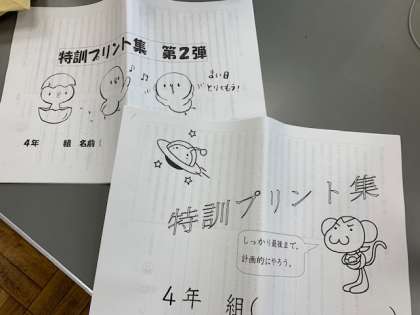 特訓プリント集 第2弾
4年 組 名前
特訓プリント集
しっかり最後まで、
計画的にやろう。
4年 組(